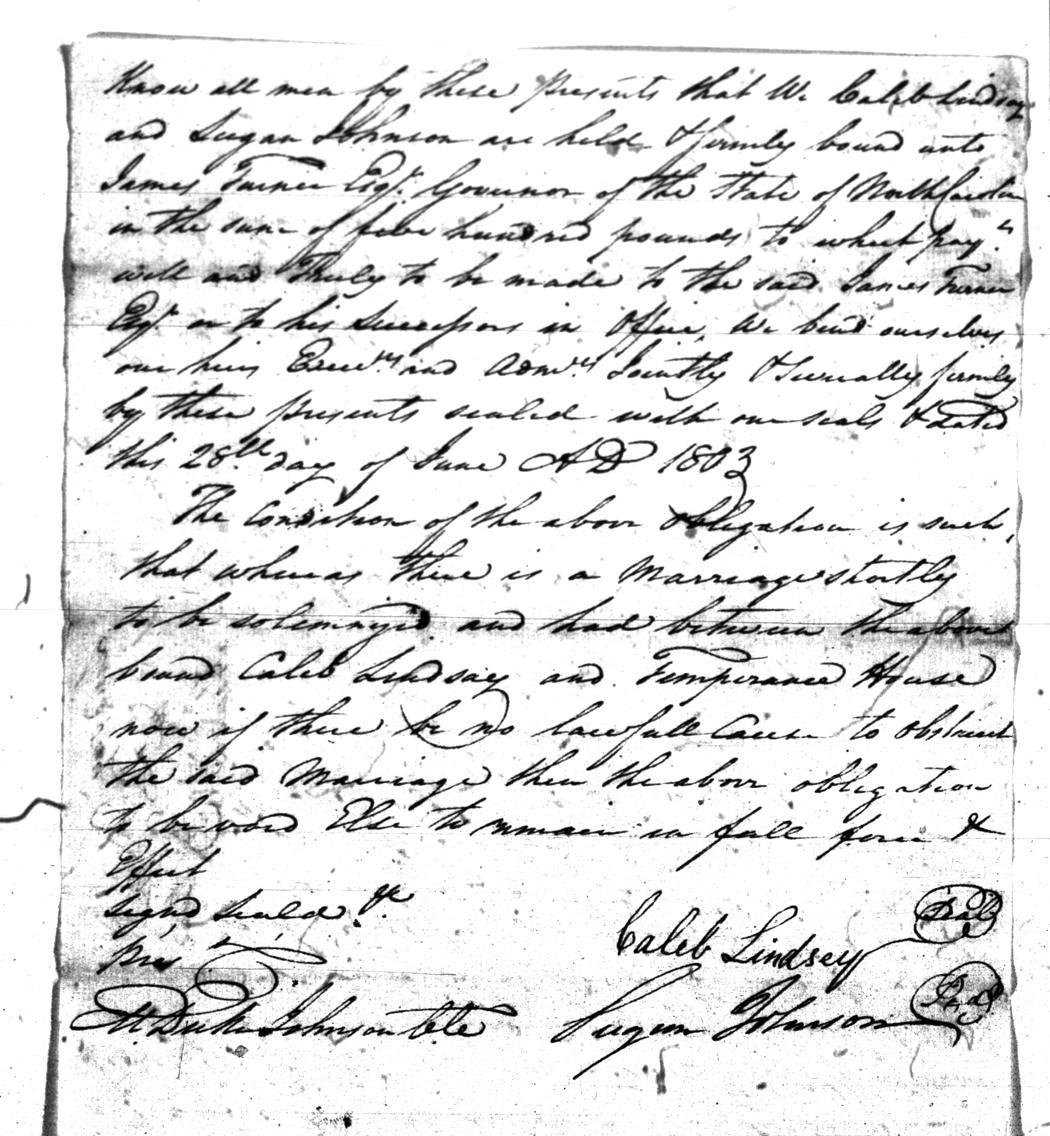 Know all men by these presents that We Caleb Lindsay
and Sugan Johnson are held & firmly bound unto
James Turner Esqr. Governor of the State of North Carolina
in the sum of five hundred pounds to which pay.t
well and Truly to be made to the said James Turner
Esqr. or to his Successors in Office, We bind ourselves
our heirs Execu.rs and Admrs. Jointly & Severally firmly
by these presents sealed with our seals & Dated
this 28th day of June AD 1803
The Condition of the above obligation is such,
that whereas there is a Marriage shortly
to be solemnized and had between the above
bound Caleb Lindsay and Temperance House
now if there be no lawfull Cause to obstruct
the said Marriage then the above obligation
to be void Else to remain in full force &
Effect
Signd Seald &c.
Pres
Caleb Lindsey Seal
M. Duke Johnson Cte
Sugan Johnson Seal